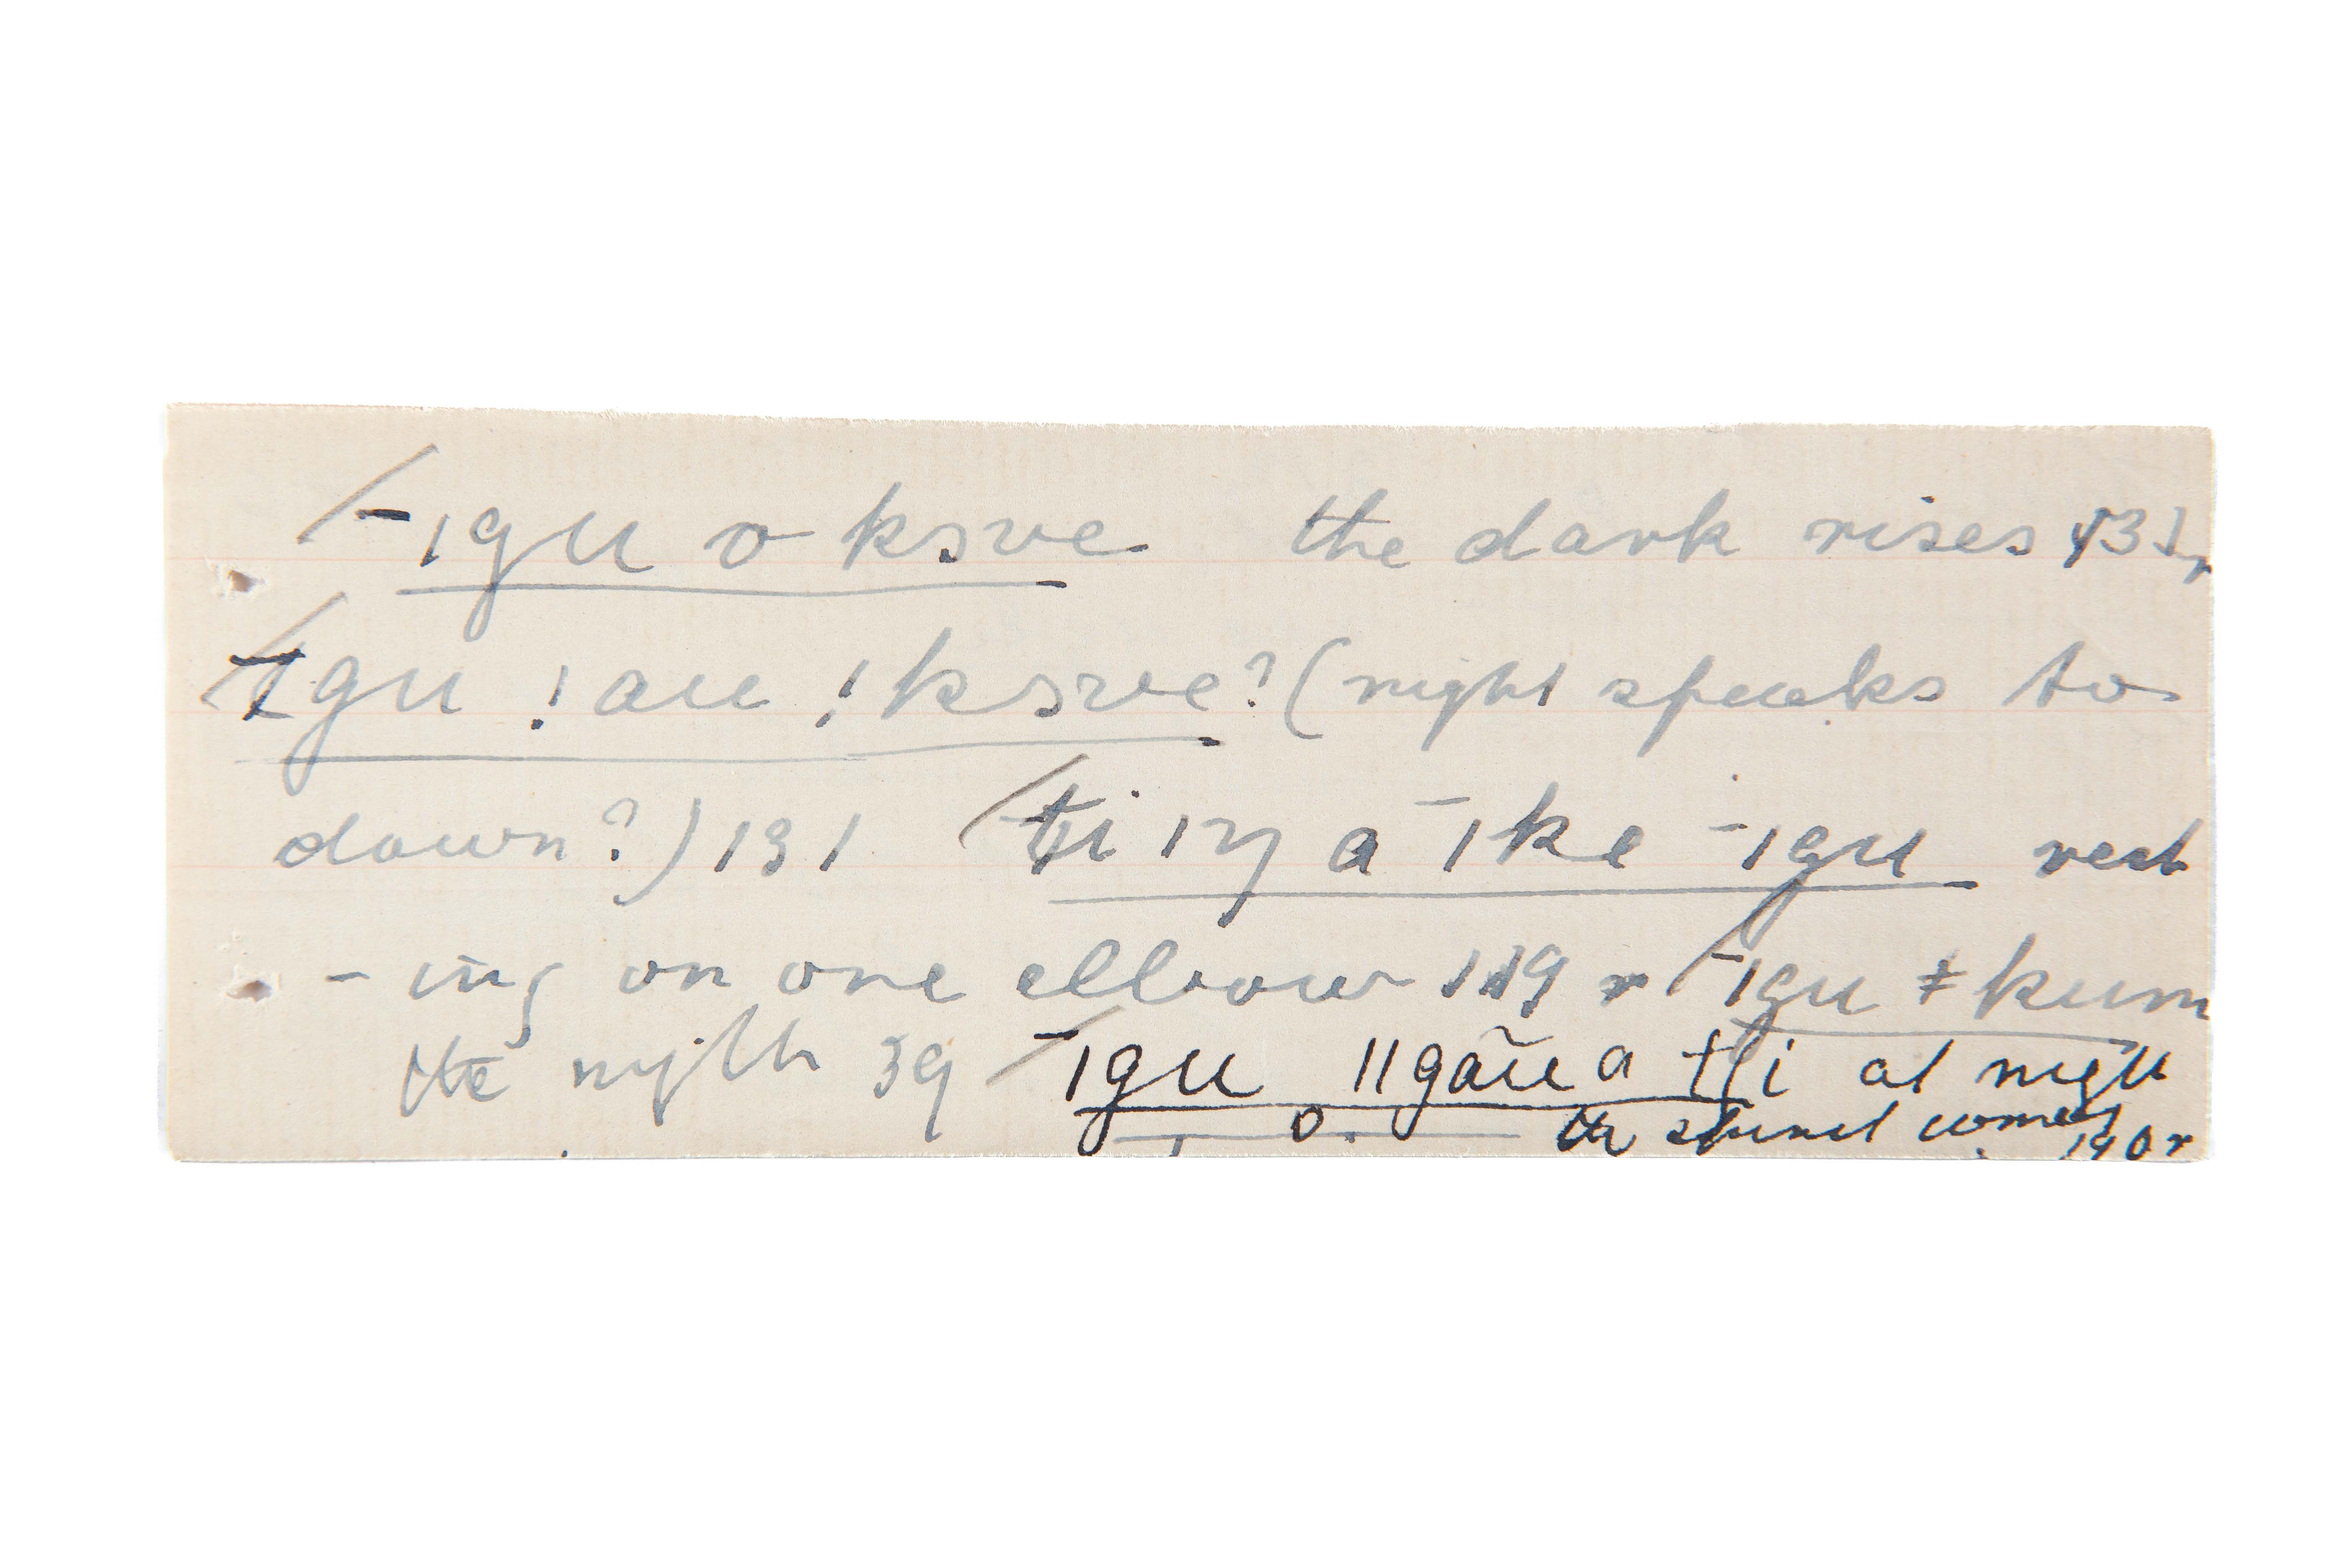 -ıgu o ksve the dark rises
ıgu ! au ! ksve? (night speaks to
dawn?) 131 ti ıŋ a ̄ ıke -ıgu rest
-ing on one elbow 119 r -ıgu ǂ kum
the night 39 -ıgu ǁgaũa tɦi at night
o the comes 190r